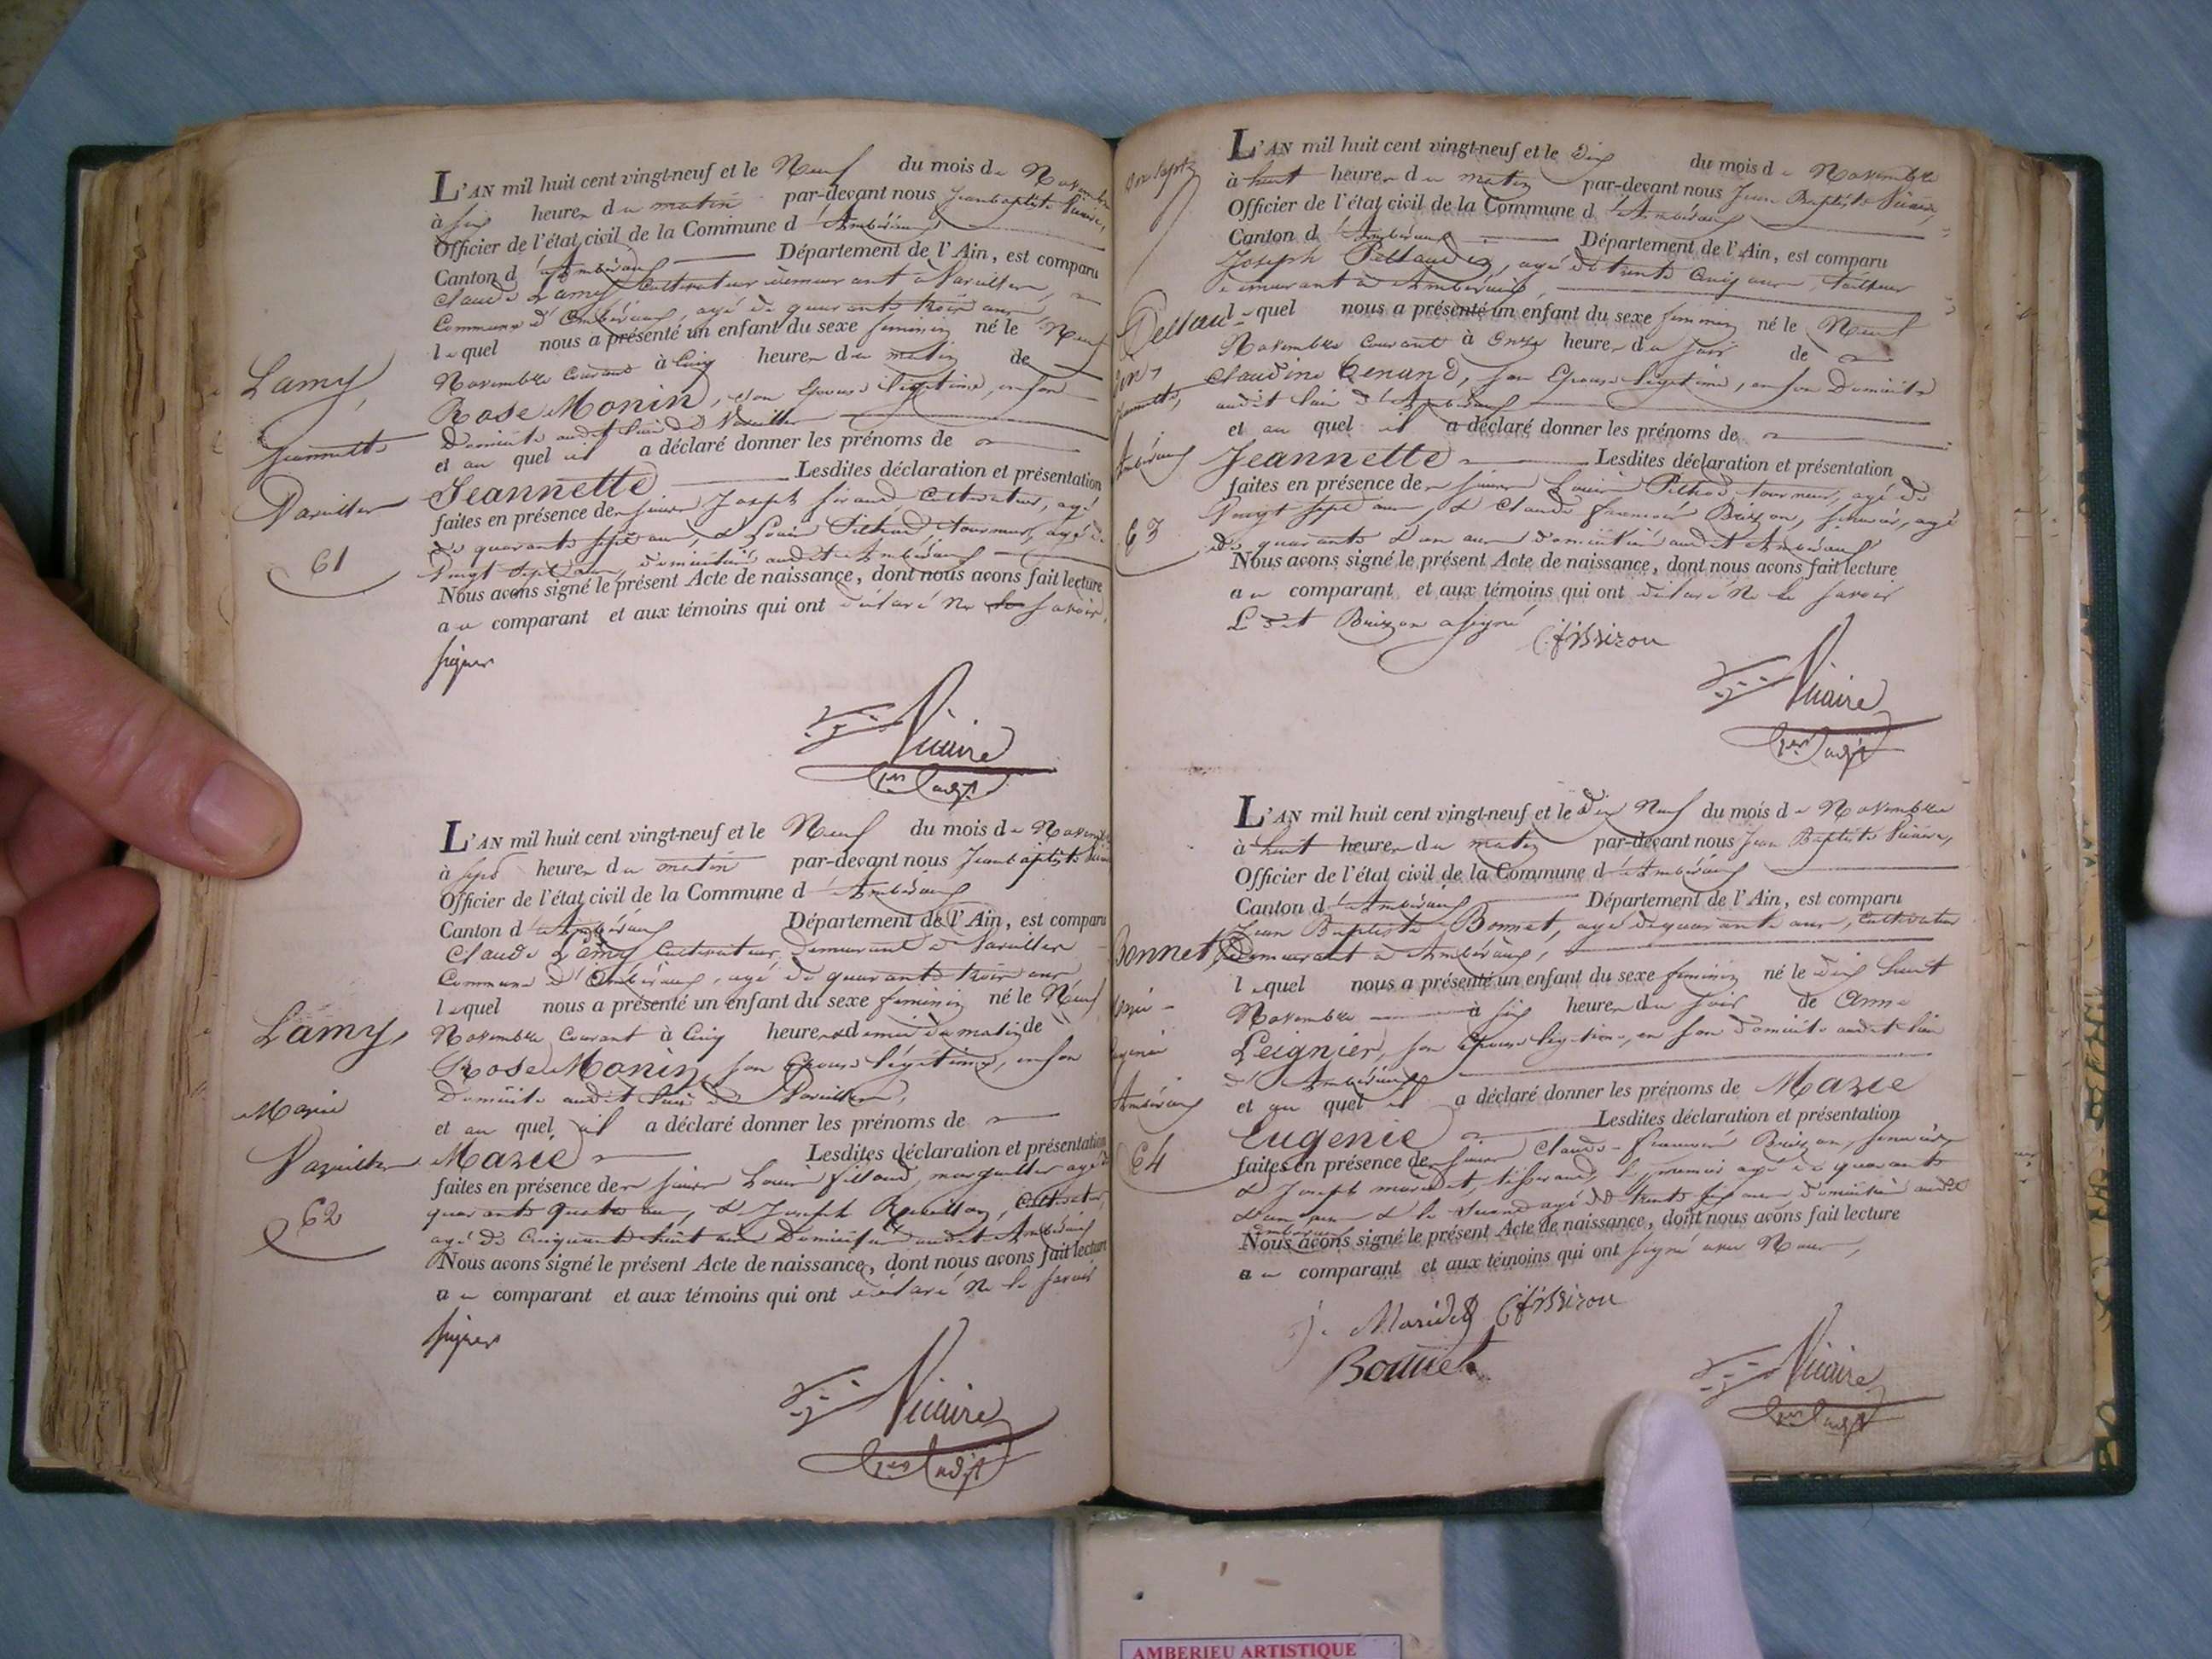 L'AN mil huit cent vingt-neuf et le Neuf du mois de Novembre
à six heures du matin par-devant nous Jean baptiste Vicaire,
Officier de l'état civil de la Commune d'Ambérieux
Canton d'Ambérieux Département de l'Ain, est comparu
Claude Lamy Cultivateur demeurant à Vareilles,
Commune d'Ambérieux, agé de quarante trois ans
lequel nous a présenté un enfant du sexe feminin né le Neuf
Novembre Courant à Cinq heures du matin de
Rose Monin, son Epouse légitime, en son
Domicile audit lieu de Vareilles
et au quel il a déclaré donner les prénoms de
Jeannette Lesdites déclaration et présentation
faites en présence des sieurs Joseph Cultivateur, agé
de quarante sept ans, & Louis Pilliod, tourneur, agé de
Vingt Sept ans, domiciliés audit Ambérieux
Nous avons signé le présent Acte de naissance, dont nous avons fait lecture
au comparant et aux témoins qui ont déclaré ne le savoir
signer
Lamy,
Jeannette
Vareilles
61
Vicaire
1er adjt
L'AN mil huit cent vingt-neuf et le Neuf du mois de Novembre
à sept heures du matin par-devant nous Jean baptiste Vicaire
Officier de l'état civil de la Commune d'Ambérieux
Canton d'Ambérieux Département de l'Ain, est comparu
Claude Lamy Cultivateur demeurant à Vareilles
Commune d'Ambérieux, agé de quarante trois ans
lequel nous a présenté un enfant du sexe feminin né le Neuf
Novembre Courant à Cinq heures & demie du matin de
Rose Monin, son Epouse légitime, en son
Domicile audit lieu de Vareilles,
et au quel il a déclaré donner les prénoms de
Marie Lesdites déclaration et présentation
faites en présence des sieurs Louis marguiller agé de
quarante quatre ans, & Joseph Cultivateur,
agé de Cinquante huit ans Domiciliés audit Ambérieux
Nous avons signé le présent Acte de naissance, dont nous avons fait lecture
au comparant et aux témoins qui ont déclaré ne le savoir
signer
Lamy,
Marie
Vareilles
62
Vicaire
1er adjt
L'AN mil huit cent vingt-neuf et le Dix du mois de Novembre
à huit heures du matin par-devant nous Jean Baptiste Vicaire,
Officier de l'état civil de la Commune d'Ambérieux
Canton d'Ambérieux Département de l'Ain, est comparu
Joseph, agé de trente Cinq ans, Tailleur
demeurant à Ambérieux,
lequel nous a présenté un enfant du sexe feminin né le Neuf
Novembre Courant à Onze heures du soir de
Claudine Tenand, son Epouse légitime, en son Domicile
audit lieu d'Ambérieux
et au quel il a déclaré donner les prénoms de
Jeannette Lesdites déclaration et présentation
faites en présence des sieurs Louis Pilliod, tourneur, agé de
Vingt sept ans, & Claude françois Brizon, agé
de quarante & un ans domiciliés audit Ambérieux
Nous avons signé le présent Acte de naissance, dont nous avons fait lecture
au comparant et aux témoins qui ont déclaré ne le savoir
Ledit Brizon a signé
C.f Brizon
Jeannette,
Ambérieux
63
Vicaire
1er adjt
L'AN mil huit cent vingt-neuf et le Dix Neuf du mois de Novembre
à huit heures du matin par-devant nous Jean Baptiste Vicaire,
Officier de l'état civil de la Commune d'Ambérieux
Canton d'Ambérieux Département de l'Ain, est comparu
Jean Baptiste Bonnet, agé de quarante ans, Cultivateur
Demeurant à Ambérieux,
lequel nous a présenté un enfant du sexe feminin né le Dix huit
Novembre à six heures du soir de Anne
Leignier, son Epouse légitime, en son domicile audit lieu
d'Ambérieux
et au quel il a déclaré donner les prénoms de Marie
Eugenie Lesdites déclaration et présentation
faites en présence des sieurs Claude-françois Brizon,
& Joseph, tisserand, le premier agé de quarante
& un ans & le second agé de trente six ans, domiciliés audit
Ambérieux
Nous avons signé le présent Acte de naissance, dont nous avons fait lecture
au comparant et aux témoins qui ont signé avec Nous,
Bonnet
Eugenie
Ambérieux
64
C f Brizon
Bonnet
Vicaire
1er adjt
AMBERIEU ARTISTIQUE